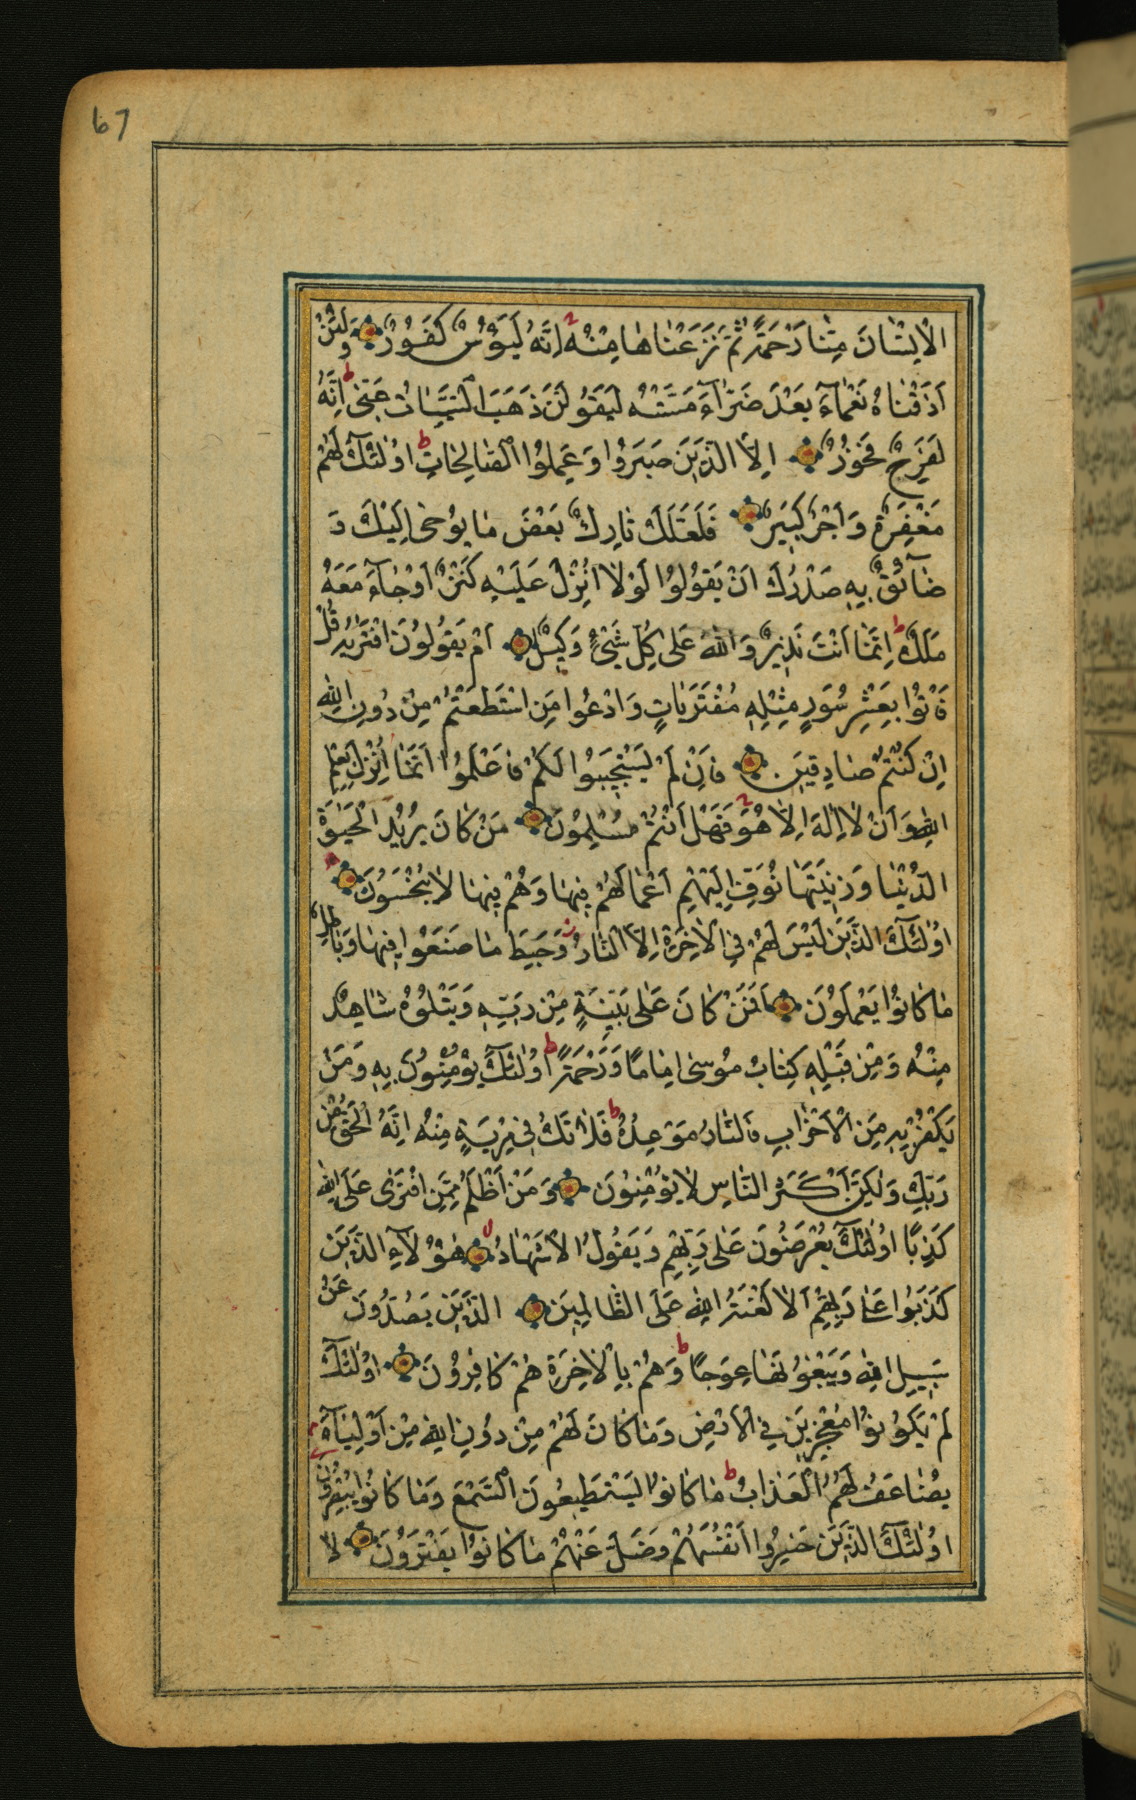 67
الْاِنْسٰانَ مِنّٰا رَحْمَةً ثُمَّ نَزَعْنٰاهٰا مِنْهُ اِنَّهُ لَيَؤُسٌ كَفُورٌ وَلَئِنْ
اَذَقْنٰاهُ نَعْمٰآءَ بَعْدَ ضَرّٰآءَ مَسَّتْهُ لَيَقُولَنَّ ذَهَبَ السَّيِّئٰاتُ عَنّٖى اِنَّهُ
لَفَرِحٌ فَخُورٌ اِلَّا الَّذٖينَ صَبَرُوا وَعَمِلُوا الصّٰالِحٰاتِ اُولٰئِكَ لَهُمْ
مَغْفِرَةٌ وَاَجْرٌ كَبٖيرٌ فَلَعَلَّكَ تٰارِكٌ بَعْضَ مٰا يُوحٰى اِلَيْكَ وَ
ضٰآئِقٌ بِهٖ صَدْرُكَ اَنْ يَقُولُوا لَوْلٰا اُنْزِلَ عَلَيْهِ كَنْزٌ اَوْ جٰآءَ مَعَهُ
مَلَكٌ اِنَّمٰا اَنْتَ نَذٖيرٌ وَاللّٰهُ عَلٰى كُلِّ شَيْءٍ وَكٖيلٌ اَمْ يَقُولُونَ افْتَرٰيهُ قُلْ
فَأْتُوا بِعَشْرِ سُوَرٍ مِثْلِهٖ مُفْتَرَيٰاتٍ وَادْعُوا مَنِ اسْتَطَعْتُمْ مِنْ دُونِ اللّٰهِ
اِنْ كُنْتُمْ صٰادِقٖينَ فَاِنْ لَمْ يَسْتَجٖيبُوا لَكُمْ فَاعْلَمُوا اَنَّمٰا اُنْزِلَ بِعِلْمِ
اللّٰهِ وَاَنْ لٰا اِلٰهَ اِلّٰا هُوَ فَهَلْ اَنْتُمْ مُسْلِمُونَ مَنْ كٰانَ يُرٖيدُ الْحَيٰوةَ
الدُّنْيٰا وَزٖينَتَهٰا نُوَفِّ اِلَيْهِمْ اَعْمٰالَهُمْ فٖيهٰا وَهُمْ فٖيهٰا لٰا يُبْخَسُونَ
اُولٰئِكَ الَّذٖينَ لَيْسَ لَهُمْ فِي الْاٰخِرَةِ اِلَّا النّٰارُ وَحَبِطَ مٰا صَنَعُوا فٖيهٰا وَبٰاطِلٌ
مٰا كٰانُوا يَعْمَلُونَ اَفَمَنْ كٰانَ عَلٰى بَيِّنَةٍ مِنْ رَبِّهٖ وَيَتْلُوهُ شٰاهِدٌ
مِنْهُ وَمِنْ قَبْلِهٖ كِتٰابُ مُوسٰى اِمٰامًا وَرَحْمَةً اُولٰئِكَ يُؤْمِنُونَ بِهٖ وَمَنْ
يَكْفُرْ بِهٖ مِنَ الْاَحْزٰابِ فَالنّٰارُ مَوْعِدُهُ فَلٰا تَكُ فٖي مِرْيَةٍ مِنْهُ اِنَّهُ الْحَقُّ مِنْ
رَبِّكَ وَلٰكِنَّ اَكْثَرَ النّٰاسِ لٰا يُؤْمِنُونَ وَمَنْ اَظْلَمُ مِمَّنِ افْتَرٰى عَلَى اللّٰهِ
كَذِبًا اُولٰئِكَ يُعْرَضُونَ عَلٰى رَبِّهِمْ وَيَقُولُ الْاَشْهٰادُ هٰؤُلٰآءِ الَّذٖينَ
كَذَبُوا عَلٰى رَبِّهِمْ اَلٰا لَعْنَةُ اللّٰهِ عَلَى الظّٰالِمٖينَ الَّذٖينَ يَصُدُّونَ عَنْ
سَبٖيلِ اللّٰهِ وَيَبْغُونَهٰا عِوَجًا وَهُمْ بِالْاٰخِرَةِ هُمْ كٰافِرُونَ اُولٰئِكَ
لَمْ يَكُونُوا مُعْجِزٖينَ فِي الْاَرْضِ وَمٰا كٰانَ لَهُمْ مِنْ دُونِ اللّٰهِ مِنْ اَوْلِيٰآءَ
يُضٰاعَفُ لَهُمُ الْعَذٰابُ مٰا كٰانُوا يَسْتَطٖيعُونَ السَّمْعَ وَمٰا كٰانُوا يُبْصِرُونَ
اُولٰئِكَ الَّذٖينَ خَسِرُوا اَنْفُسَهُمْ وَضَلَّ عَنْهُمْ مٰا كٰانُوا يَفْتَرُونَ لٰا